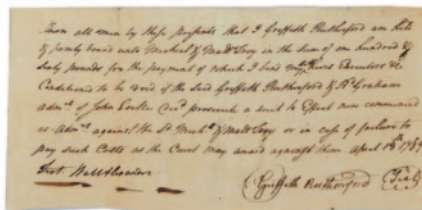 Know all men by these presents that I Griffith Rutherford am held
& firmly bound unto Michael & Matt Troy in the Sum of one hundred &
Sixty pounds for the payment of which I bind my Heirs Executors &c
Conditioned to be void if the said Griffith Rutherford & Rd Graham
Admrs of John Decd prosecute a suit to Effect now commenced
as Admrs against the Sd Michl & Matt Troy or in case of failure to
pay such Costs as the Court may award against them April 15th
Test
Griffith Rutherford Seal